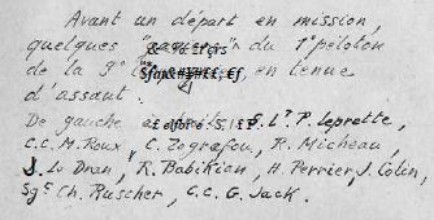 Avant un départ en mission,
quelques du 1° peloton
de la 9° en tenue
d'assaut.
De gauche S. Lt P. Leprette,
C.C. M. Roux, C. Zografou, R. Micheau,
J. Lv Dnan, R. Babikian, H. Perrier, J. Colin,
Sgt Ch. Ruscher, C.C. G. Jack.